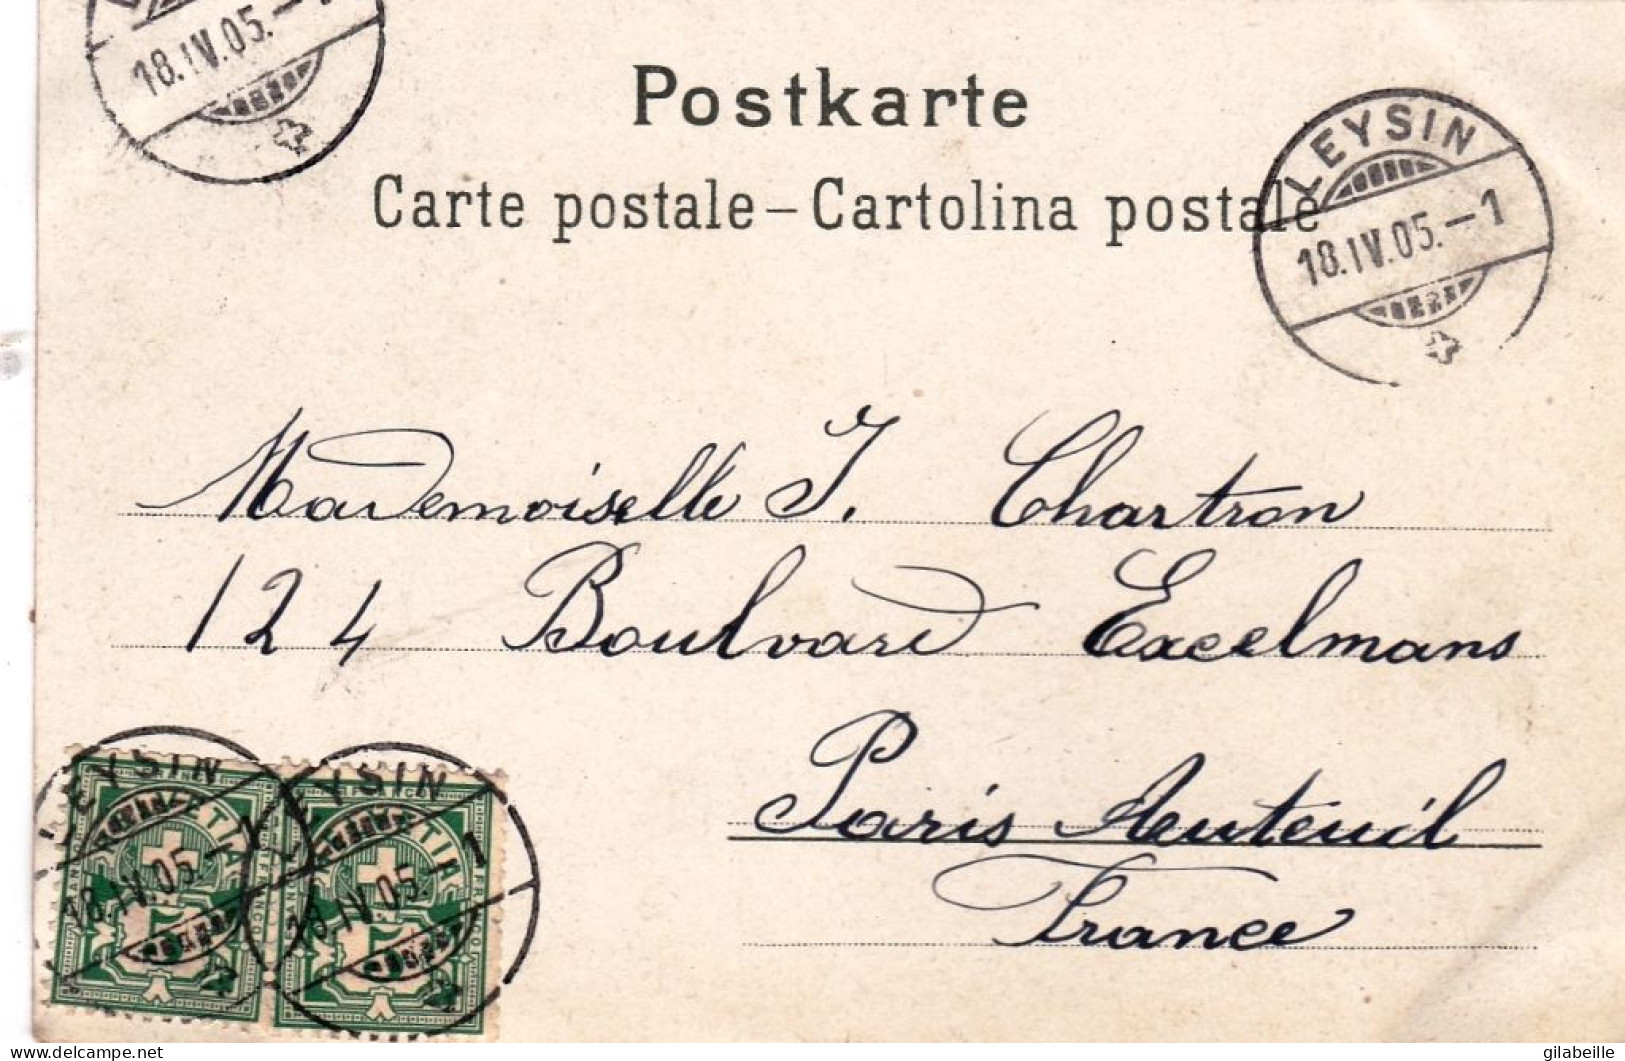 18.IV.05.–1
Postkarte
LEYSIN
18.IV.05.–1
Carte postale – Cartolina postale
Mademoiselle J. Chartron
124 Boulvard Excelmans
Paris Auteuil
France
LEYSIN
18.IV.05.–1
LEYSIN
18.IV.05.–1
HELVETIA
HELVETIA
FRANCO
FRANCO
5
5
delcampe.net
gilabeille